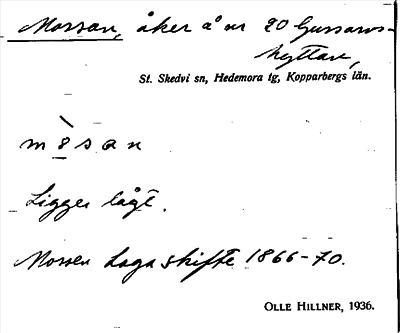 Mossan, åker å nr 20 Gussarvs-
hyttan,
St. Skedvi sn, Hedemora tg, Kopparbergs län.
m8̀san
Ligger lågt.
Mossen Laga skifte 1866-70.
OLLE HILLNER, 1936.